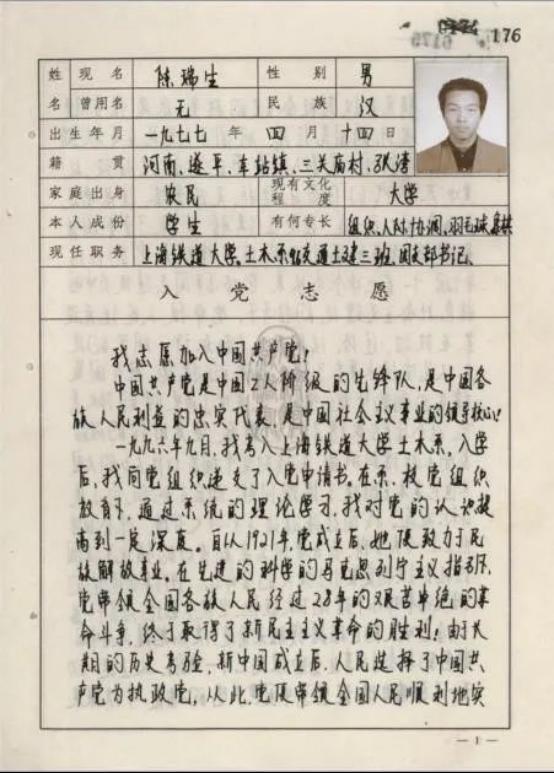 176
姓名 现名 陈瑞生 性别 男
曾用名 无 民族 汉
出生年月 一九七七年 四月十四日
籍贯 河南、遂平、车站镇、三关庙村、张湾
家庭出身 农民 现有文化程度 大学
本人成份 学生 有何专长 组织、人际协调、羽毛球、象棋
现任职务 上海铁道大学、土木系96交通土建三班、团支部书记、
入党志愿
我志愿加入中国共产党!
中国共产党是中国工人阶级的先锋队,是中国各
族人民利益的忠实代表,是中国社会主义事业的领导核心!
一九九六年九月,我考入上海铁道大学土木系,入学
后,我向党组织递交了入党申请书。在系、校党组织
教育下,通过系统的理论学习,我对党的认识提
高到一定深度。自从1921年,党成立后,她便致力于民
族解放事业。在先进的科学的马克思列宁主义指引下,
党带领全国各族人民经过28年的艰苦卓绝的革
命斗争,终于取得了新民主主义革命的胜利!由于长
期的历史考验,新中国成立后,人民选择了中国共
产党为执政党。从此,党便带领全国人民顺利地实
— 1 —